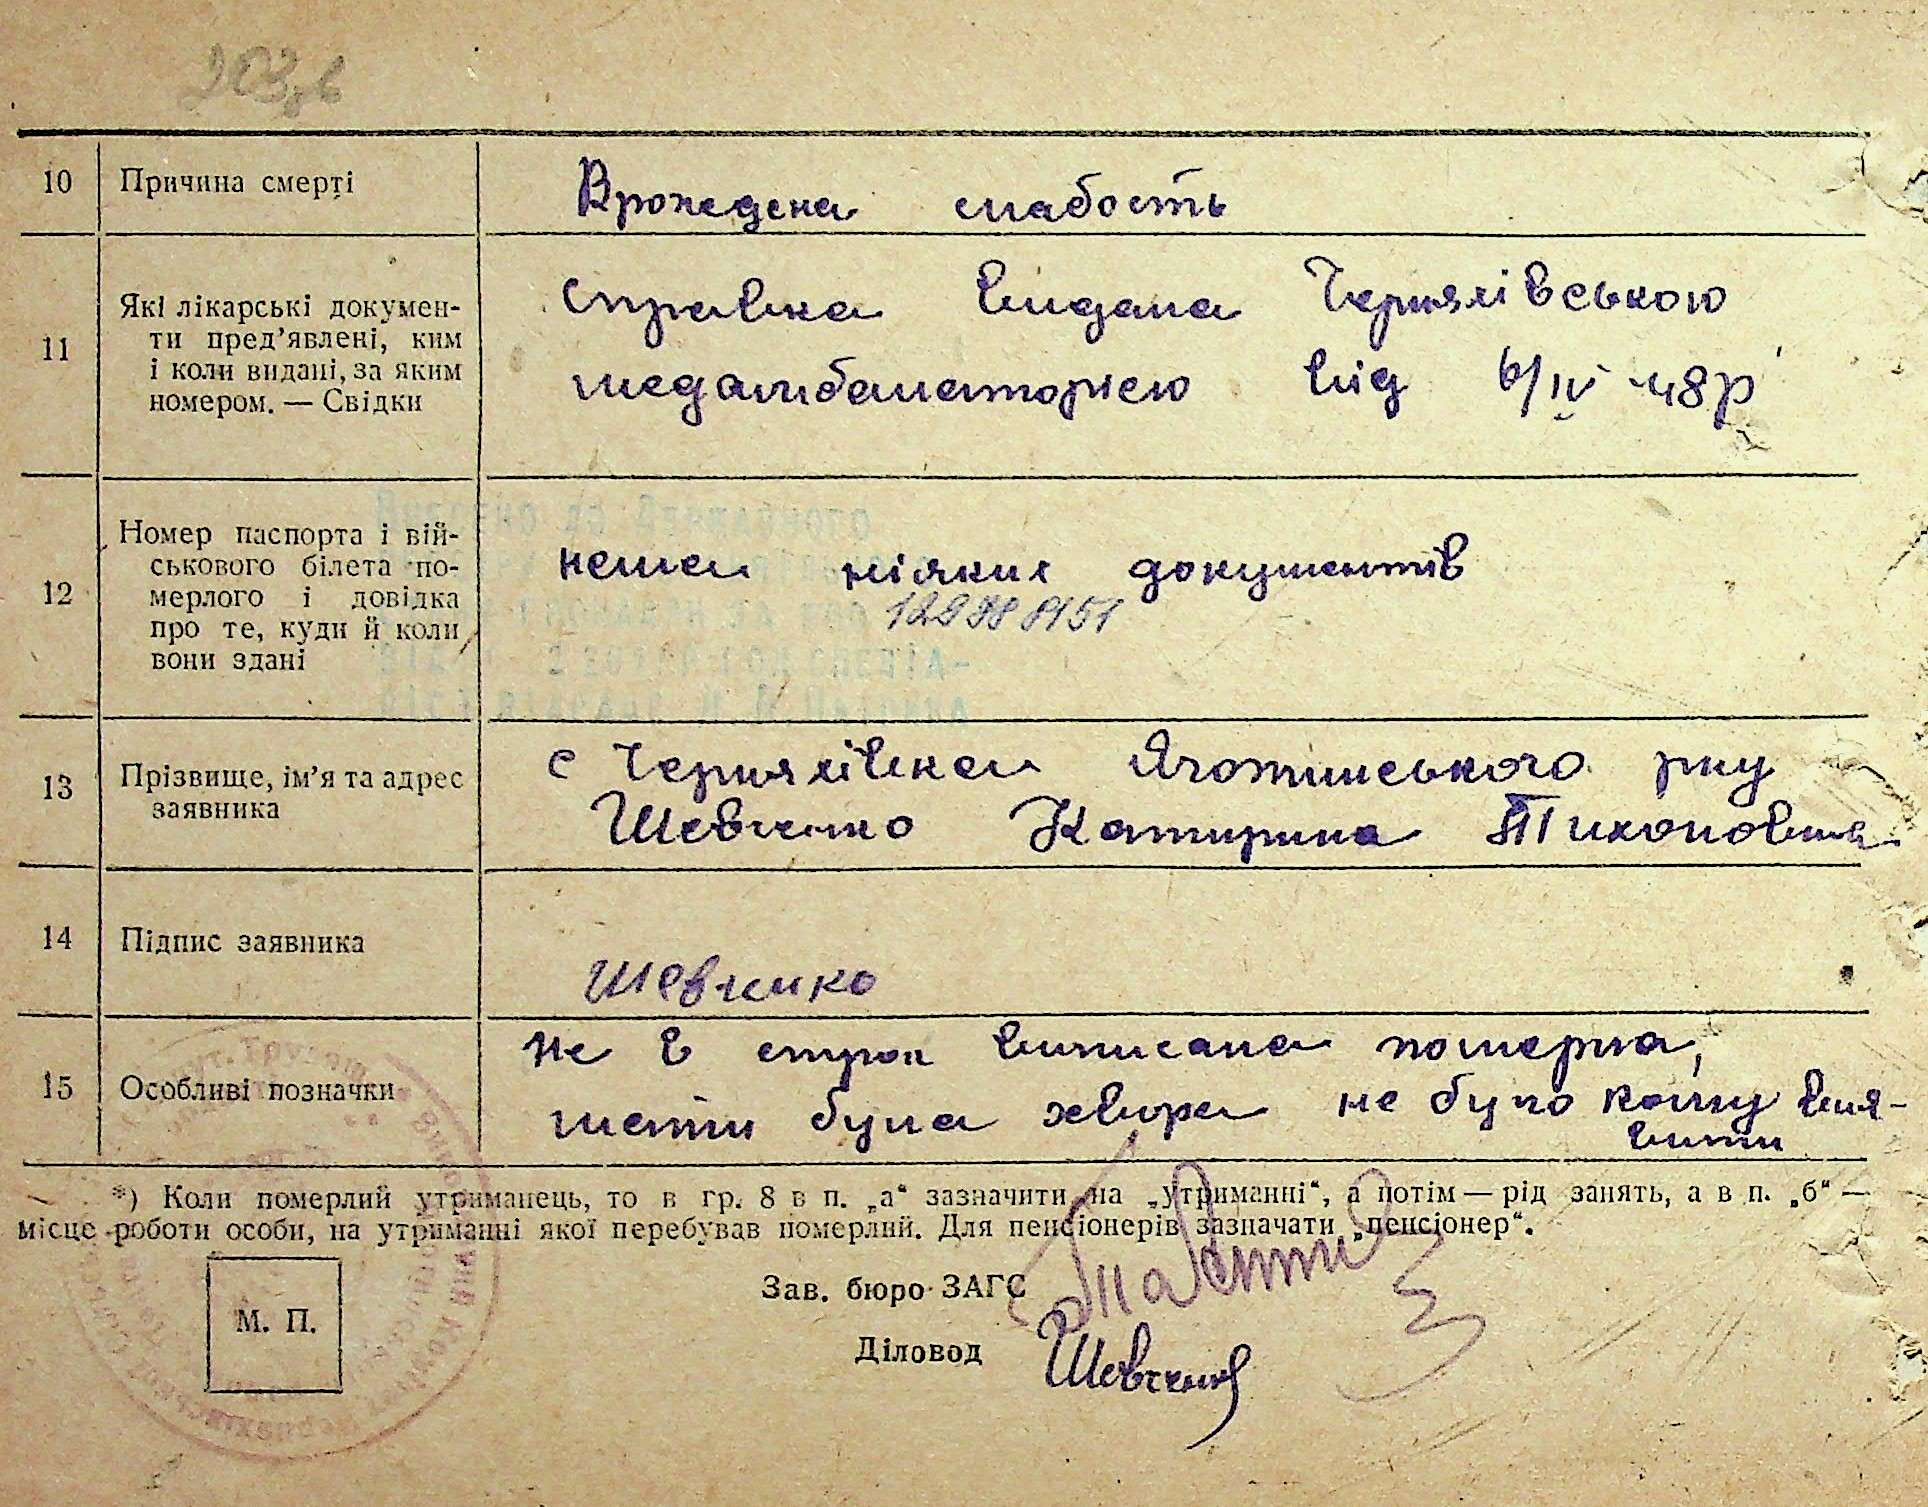 10 Причина смерті Врождена слабость
11 Які лікарські докумен-
ти пред'явлені, ким
і коли видані, за яким
номером. — Свідки
справка видана Черняхівською
медамбалаторією від 6/IV 48р
12 Номер паспорта і вій-
ськового білета по-
мерлого і довідка
про те, куди й коли
вони здані
нема ніяких документів
13 Прізвище, ім'я та адрес
заявника
с Черняхівка Яготинського рну
Шевченко Катирина Тихоновна
14 Підпис заявника
Шевченко
15 Особливі позначки
не в строк виписана померла,
мати була хвора не було кому вия-
вити
*) Коли померлий утриманець, то в гр. 8 в п. „а“ зазначити на „утриманні“, а потім — рід занять, а в п. „б“ —
місце роботи особи, на утриманні якої перебував померлий. Для пенсіонерів зазначати „пенсіонер“.
М. П.
Зав. бюро ЗАГС
Діловод Шевченко